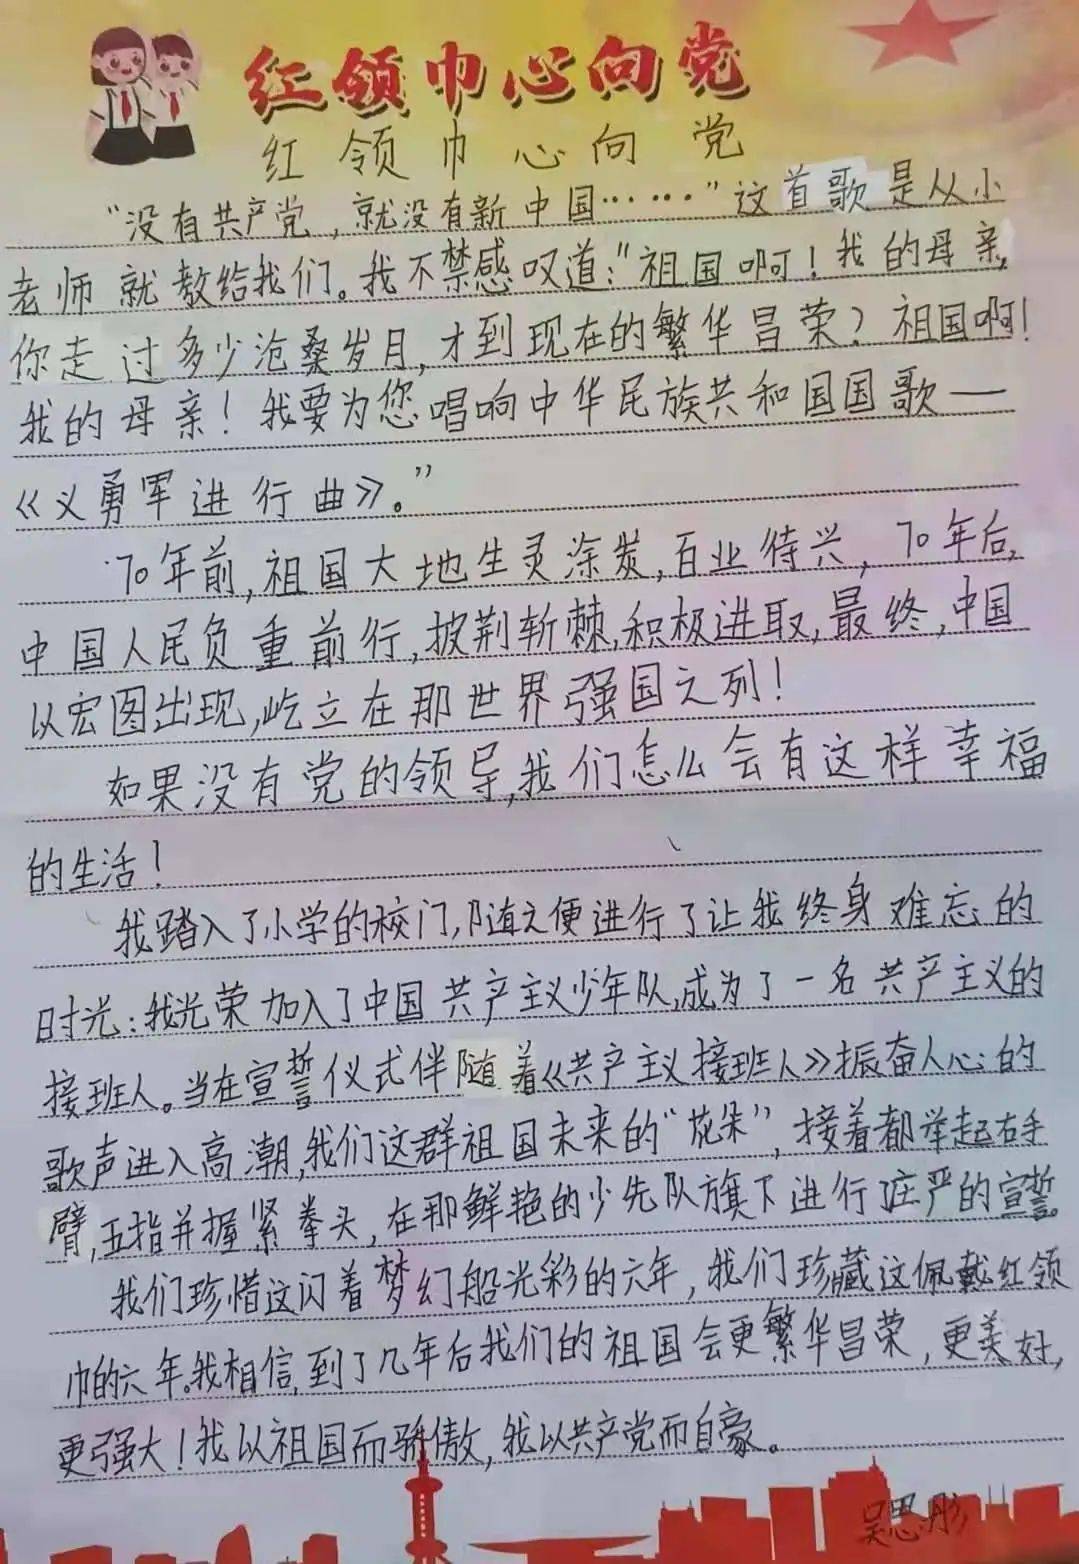 红领巾心向党
红领巾心向党
“没有共产党，就没有新中国……”这首歌是从小
老师就教给我们。我不禁感叹道：“祖国啊！我的母亲，
你走过多少沧桑岁月，才到现在的繁华昌荣？祖国啊！
我的母亲！我要为您唱响中华民族共和国国歌——
《义勇军进行曲》。”
70年前，祖国大地生灵涂炭，百业待兴，70年后，
中国人民负重前行，披荆斩棘，积极进取，最终，中国
以宏图出现，屹立在那世界强国之列！
如果没有党的领导，我们怎么会有这样幸福
的生活！
我踏入了小学的校门，随之便进行了让我终身难忘的
时光：我光荣加入了中国共产主义少年队，成为了一名共产主义的
接班人。当在宣誓仪式伴随着《共产主义接班人》振奋人心的
歌声进入高潮，我们这群祖国未来的“花朵”，接着都举起右手
臂，五指并握紧拳头，在那鲜艳的少先队旗下进行庄严的宣誓。
我们珍惜这闪着梦幻船光彩的六年，我们珍藏这佩戴红领
巾的六年。我相信，到了几年后我们的祖国会更繁华昌荣，更美好，
更强大！我以祖国而骄傲，我以共产党而自豪。
吴思彤